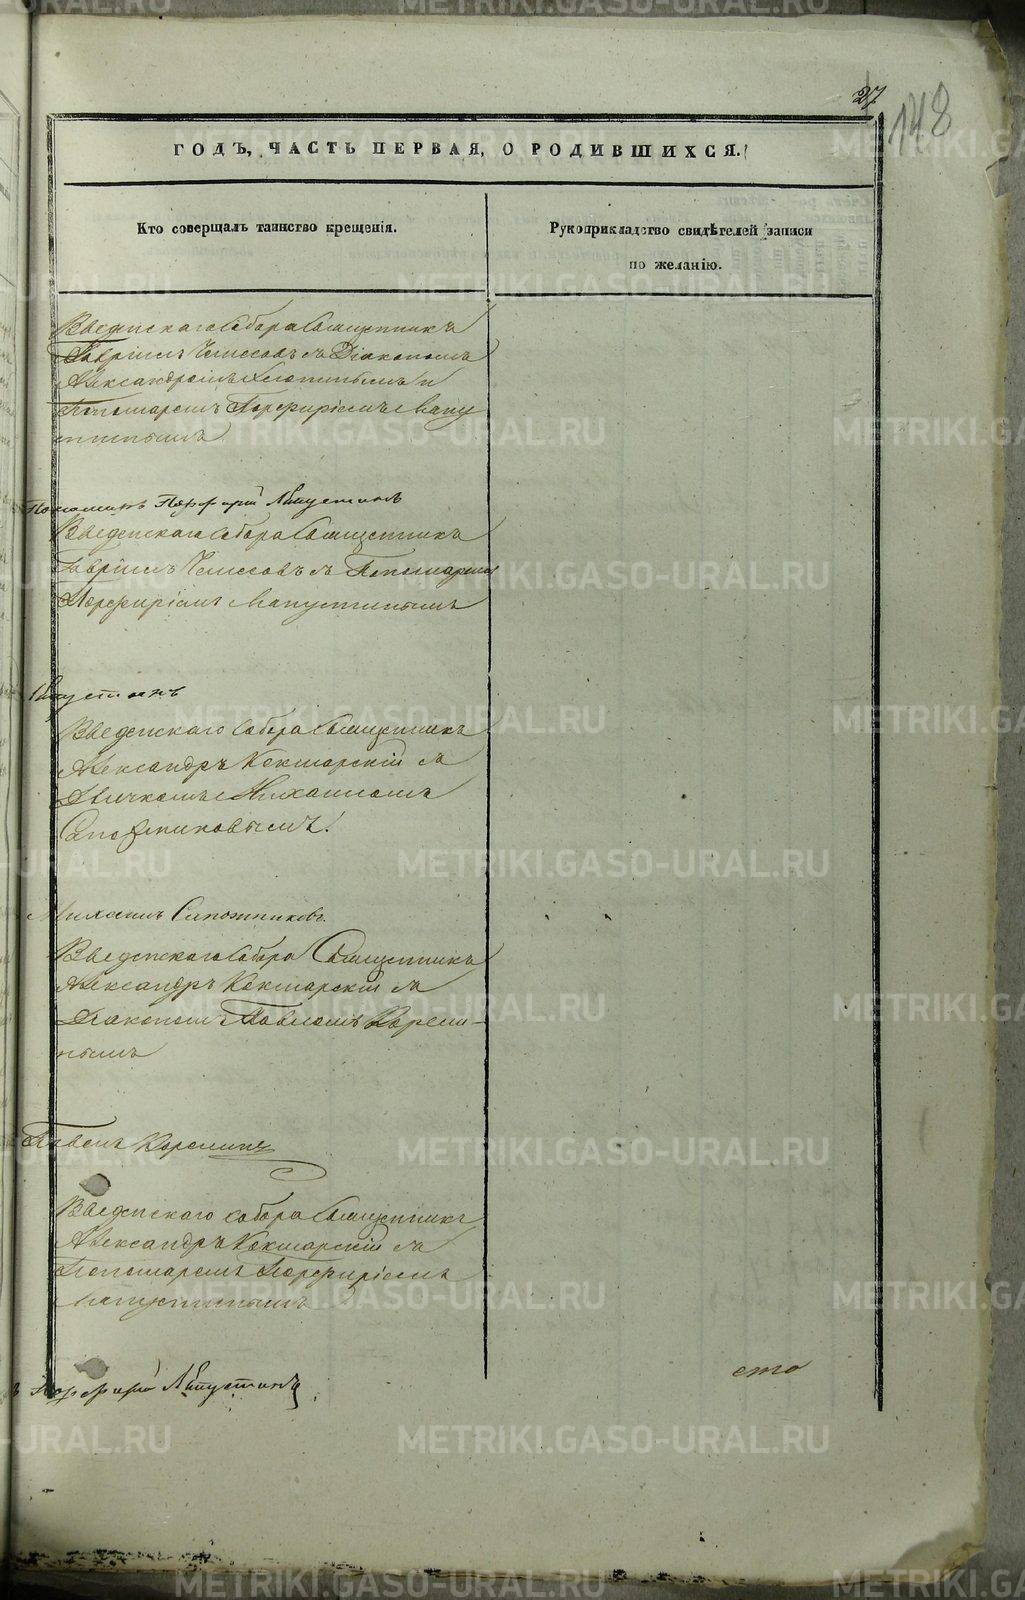 27
148
ГОДЪ, ЧАСТЬ ПЕРВАЯ, О РОДИВШИХСЯ.
Кто совершалъ таинство крещенія.
Рукоприкладство свидѣтелей записи
по желанію.
Введенскаго Собора Священникъ
Гавріилъ съ Діакономъ
Александромъ и
Пономаремъ Порфиріемъ Лапу
стинымъ
Порфирій Лапустинъ
Введенскаго Собора Священникъ
Гавріилъ съ Пономаремъ
Порфиріемъ Лапустинымъ
Лапустинъ
Введенскаго Собора Священникъ
Александръ Кокшарскій съ
Дьячкомъ Михаиломъ
Сапожниковымъ.
Михаилъ Сапожниковъ
Введенскаго Собора Священникъ
Александръ Кокшарскій съ
Діакономъ Павломъ Корели-
нымъ
Павелъ Корелинъ
Введенскаго Собора Священникъ
Александръ Кокшарскій съ
Пономаремъ Порфиріемъ
Лапустинымъ
Порфирій Лапустинъ
сто
METRIKI.GASO-URAL.RU